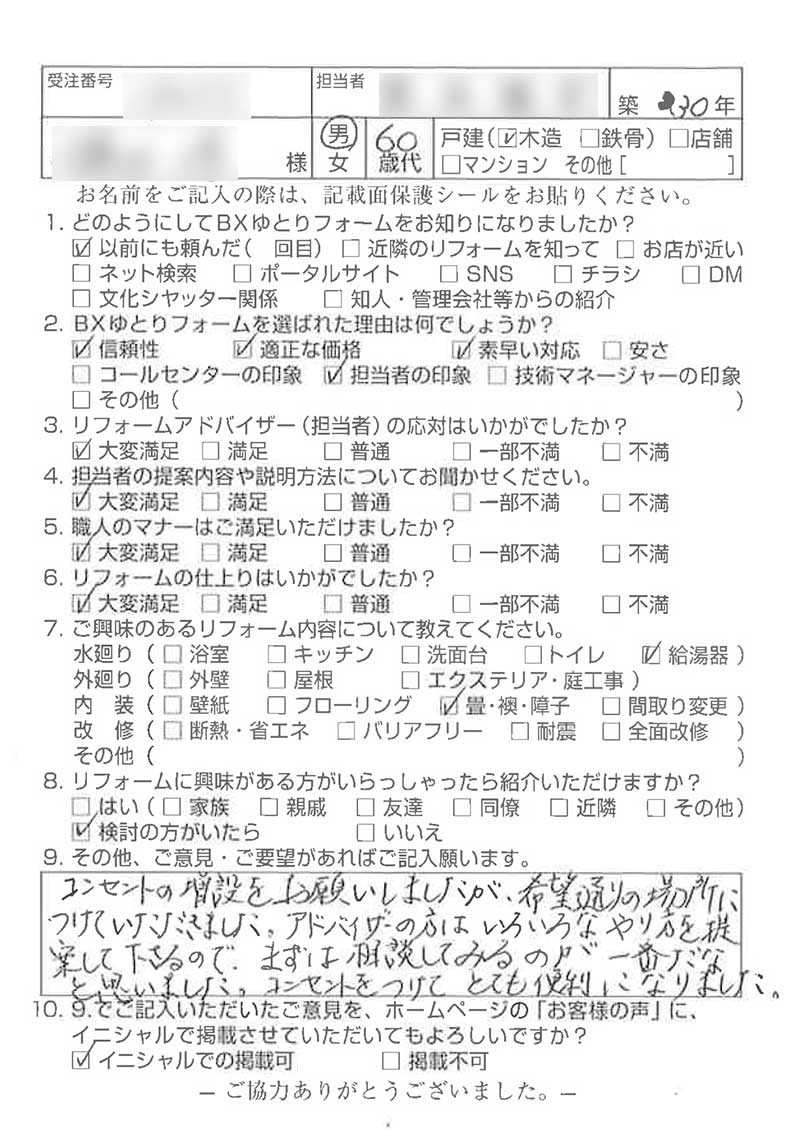 受注番号
担当者
築 30年
様
男
女
60
歳代
戸建(☑木造 □鉄骨) □店舗
□マンション その他 [ ]
お名前をご記入の際は、記載面保護シールをお貼りください。
1. どのようにしてBXゆとりフォームをお知りになりましたか？
☑ 以前にも頼んだ( 回目) □ 近隣のリフォームを知って □ お店が近い
□ ネット検索 □ ポータルサイト □ SNS □ チラシ □ DM
□ 文化シヤッター関係 □ 知人・管理会社等からの紹介
2. BXゆとりフォームを選ばれた理由は何でしょうか？
☑ 信頼性 ☑ 適正な価格 ☑ 素早い対応 □ 安さ
□ コールセンターの印象 ☑ 担当者の印象 □ 技術マネージャーの印象
□ その他 ( )
3. リフォームアドバイザー(担当者)の応対はいかがでしたか？
☑ 大変満足 □ 満足 □ 普通 □ 一部不満 □ 不満
4. 担当者の提案内容や説明方法についてお聞かせください。
☑ 大変満足 □ 満足 □ 普通 □ 一部不満 □ 不満
5. 職人のマナーはご満足いただけましたか？
☑ 大変満足 □ 満足 □ 普通 □ 一部不満 □ 不満
6. リフォームの仕上りはいかがでしたか？
☑ 大変満足 □ 満足 □ 普通 □ 一部不満 □ 不満
7. ご興味のあるリフォーム内容について教えてください。
水廻り ( □ 浴室 □ キッチン □ 洗面台 □ トイレ ☑ 給湯器 )
外廻り ( □ 外壁 □ 屋根 □ エクステリア・庭工事 )
内 装 ( □ 壁紙 □ フローリング ☑ 畳・襖・障子 □ 間取り変更 )
改 修 ( □ 断熱・省エネ □ バリアフリー □ 耐震 □ 全面改修 )
その他 ( )
8. リフォームに興味がある方がいらっしゃったら紹介いただけますか？
□ はい ( □ 家族 □ 親戚 □ 友達 □ 同僚 □ 近隣 □ その他)
☑ 検討の方がいたら □ いいえ
9. その他、ご意見・ご要望があればご記入願います。
コンセントの増設をお願いしましたが、希望通りの場所に
つけていただきました。アドバイザーの方はいろいろなやり方を提
案して下さるので、まずは相談してみるのが一番だな
と思いました。コンセントをつけてとても便利になりました。
10. 9.でご記入いただいたご意見を、ホームページの「お客様の声」に、
イニシャルで掲載させていただいてもよろしいですか？
☑ イニシャルでの掲載可 □ 掲載不可
– ご協力ありがとうございました。–